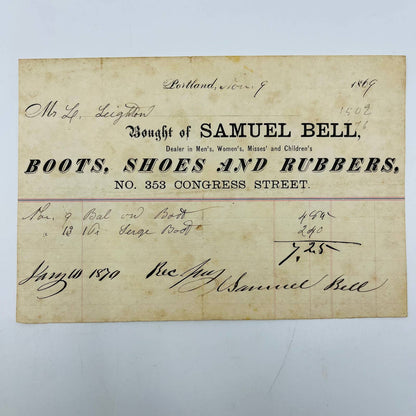 Portland, Nov. 9 1869
Mr L. Leighton
Bought of SAMUEL BELL,
Dealer in Men's, Women's, Misses' and Children's
BOOTS, SHOES AND RUBBERS,
NO. 353 CONGRESS STREET.
Nov. 9 Bal on Boot
" 13 1 Pr Serge Boot
7.25
Jany 10 1870 Rec Pay
Samuel Bell